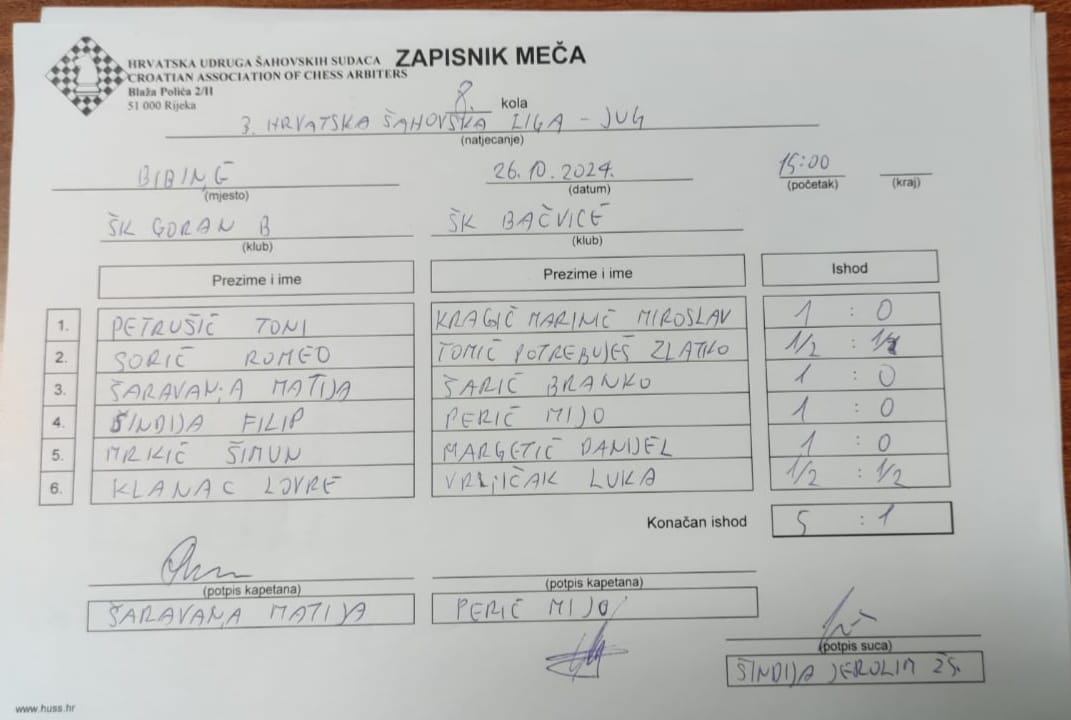 HRVATSKA UDRUGA ŠAHOVSKIH SUDACA ZAPISNIK MEČA
CROATIAN ASSOCIATION OF CHESS ARBITERS
Blaža Polića 2/II
51 000 Rijeka
8. kola
3. HRVATSKA ŠAHOVSKA LIGA - JUG
(natjecanje)
BIBINJE 26.10.2024. 15:00
(mjesto) (datum) (početak) (kraj)
ŠK GORAN B ŠK BAČVICE
(klub) (klub)
Prezime i ime Prezime i ime Ishod
1. PETRUŠIĆ TONI KRAGIĆ MARINIĆ MIROSLAV 1 : 0
2. SORIĆ ROMEO TOMIĆ POTREBUJEŠ ZLATKO 1/2 : 1/2
3. ŠARAVANJA MATIJA ŠARIĆ BRANKO 1 : 0
4. ŠINDIJA FILIP PERIĆ MIJO 1 : 0
5. MRKIĆ ŠIMUN MARGETIĆ DANIJEL 1 : 0
6. KLANAC LOVRE VRLJIČAK LUKA 1/2 : 1/2
Konačan ishod 5 : 1
(potpis kapetana) (potpis kapetana)
ŠARAVANJA MATIJA PERIĆ MIJO
(potpis suca)
ŠINDIJA JEROLIM ŽS.
www.huss.hr